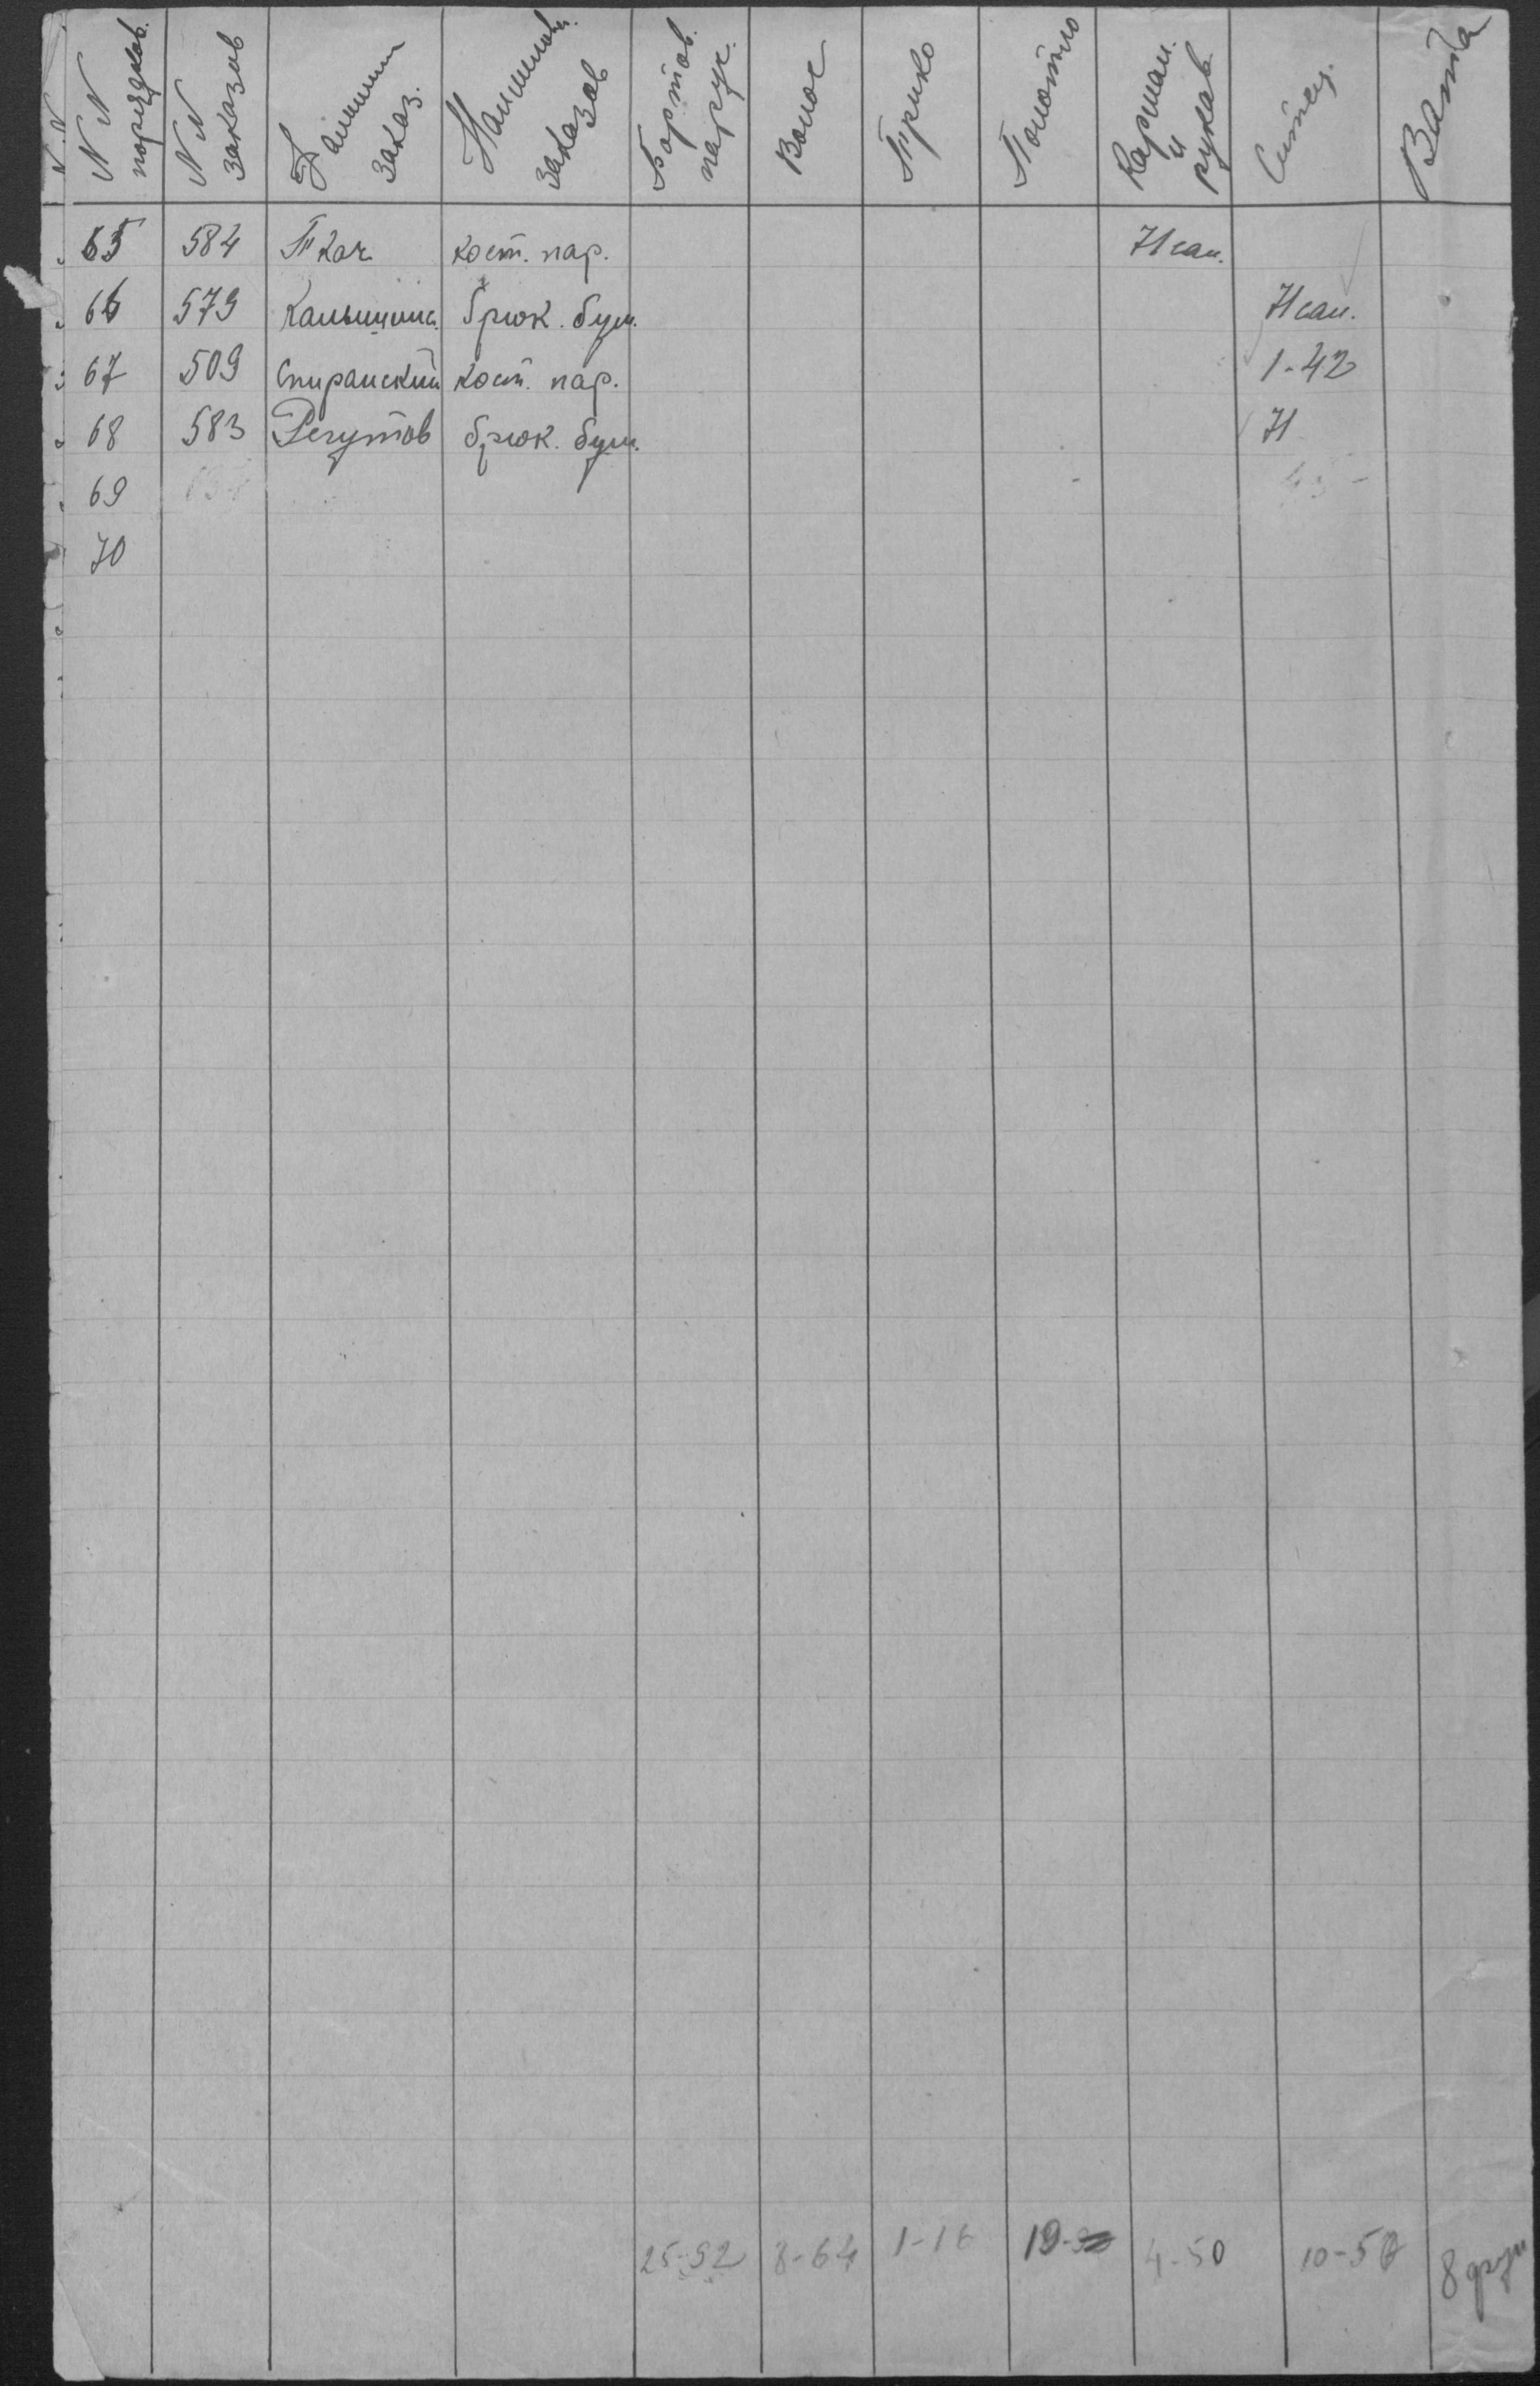 N.N
NN порядков.
NN заказов
Фамилии заказ.
Наименов. заказов
Бортов. парус.
Волос
Трико
Полотно
Карман. и рукав.
Ситец.
Вата
65 584 Ткач кост. пар. И сан.
66 579 брюк. бум. И сан.
67 509 Спиранский кост. пар. 1-42
68 583 Регутов брюк. бум. И
69
70
25-92 8-64 1-16 19- 4-50 10-50 8 фун